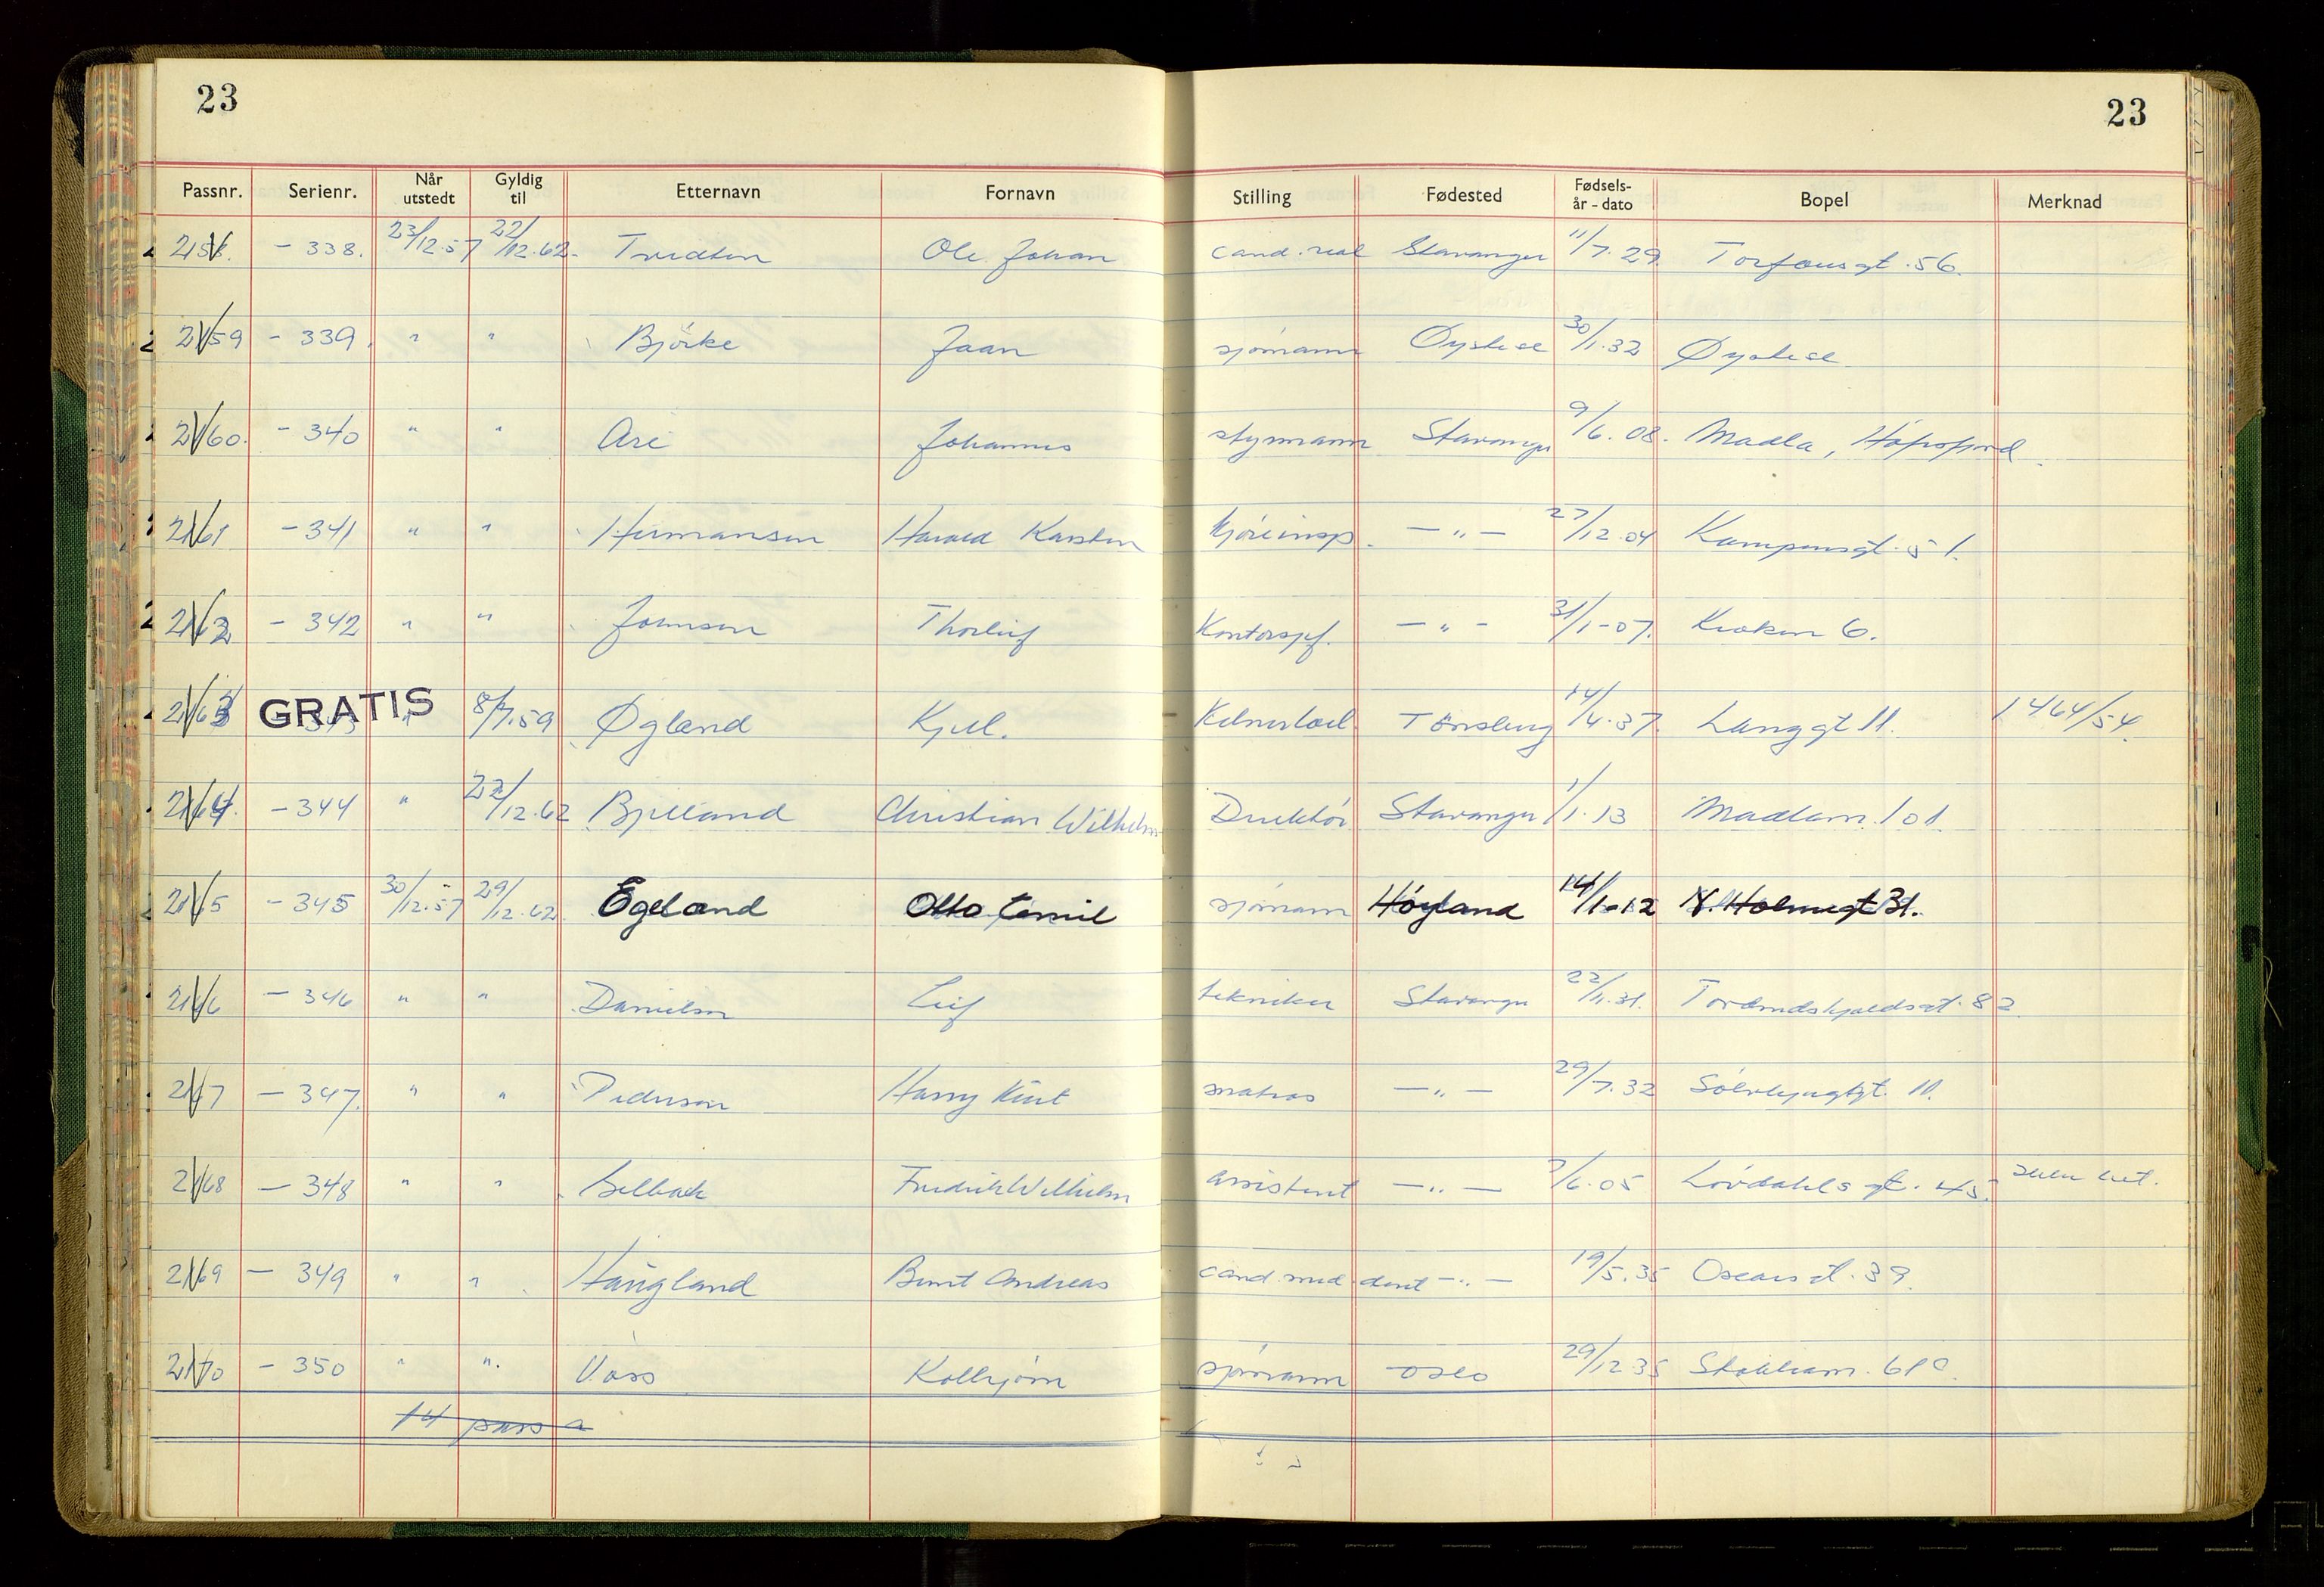 23
23
Passnr. Serienr. Når utstedt Gyldig til Etternavn Fornavn Stilling Fødested Fødsels-år - dato Bopel Merknad
2158. - 338. 23/12.57 22/12.62. Tvedten Ole Johan cand. real Stavanger 11/7.29. Torfæusgt. 56.
2159 - 339. " " Bjórke Joan sjómann Øystese 30/1.32 Øystese
2160. - 340 " " Are Johannes styrmann Stavanger 9/6.08. Madla, Hafrsfjord.
2161 - 341 " " Hermansen Harald Karsten Kjóreinsp. - " - 27/12.04 Kampensgt. 51.
2162 - 342 " " Johnsen Thorleif Kontorsjef. - " - 31/1-07. Kroken 6.
2163 GRATIS 343 " 8/7.59 Øgland Kjell. Tónsberg 14/4.37. Langgt 11. 1464/54.
2164. - 344 " 22/12.62 Bjelland Christian Wilhelm Direktór Stavanger 1/1.13 Madlam. 101.
2165 - 345 30/12.57 29/12.62 Egeland Otto Cemil sjómann Hóyland 14/1-12 N. Holmegt 31.
2166 - 346 " " Danielsen Leif tekniker Stavanger 22/11.31. Tordenskjoldsgt. 82.
2167 - 347. " " Pedersen Harry Kurt matros - " - 29/7.32 Sólvbergtgt. 11.
2168 - 348 " " Selbak Fredrik Wilhelm assistent - " - 7/6.05 Lóvdahls gt. 45.
2169 - 349 " " Haugland Bernt Andreas cand. med dent - " - 19/5.35 Oscarsgt. 39.
2170 - 350 " ". Voss Kolbjórn sjómann Oslo 29/12.35 Stokkam. 61
14 pass a